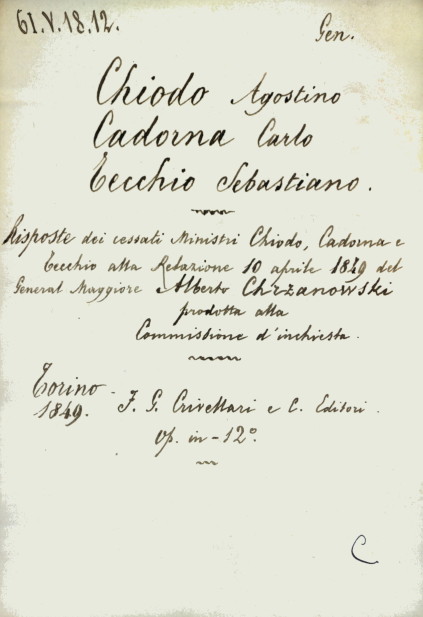 61.V.18.12.
Gen.
Chiodo Agostino
Cadorna Carlo
Tecchio Sebastiano.
Risposte dei cessati Ministri Chiodo, Cadorna e
Tecchio alla Relazione 10 aprile 1849 del
General Maggiore Alberto Chrzanowski
prodotta alla
Commissione d'inchiesta.
Torino -
1849.
F. G. Crivellari e C. Editori.
Op. in-12º.
C